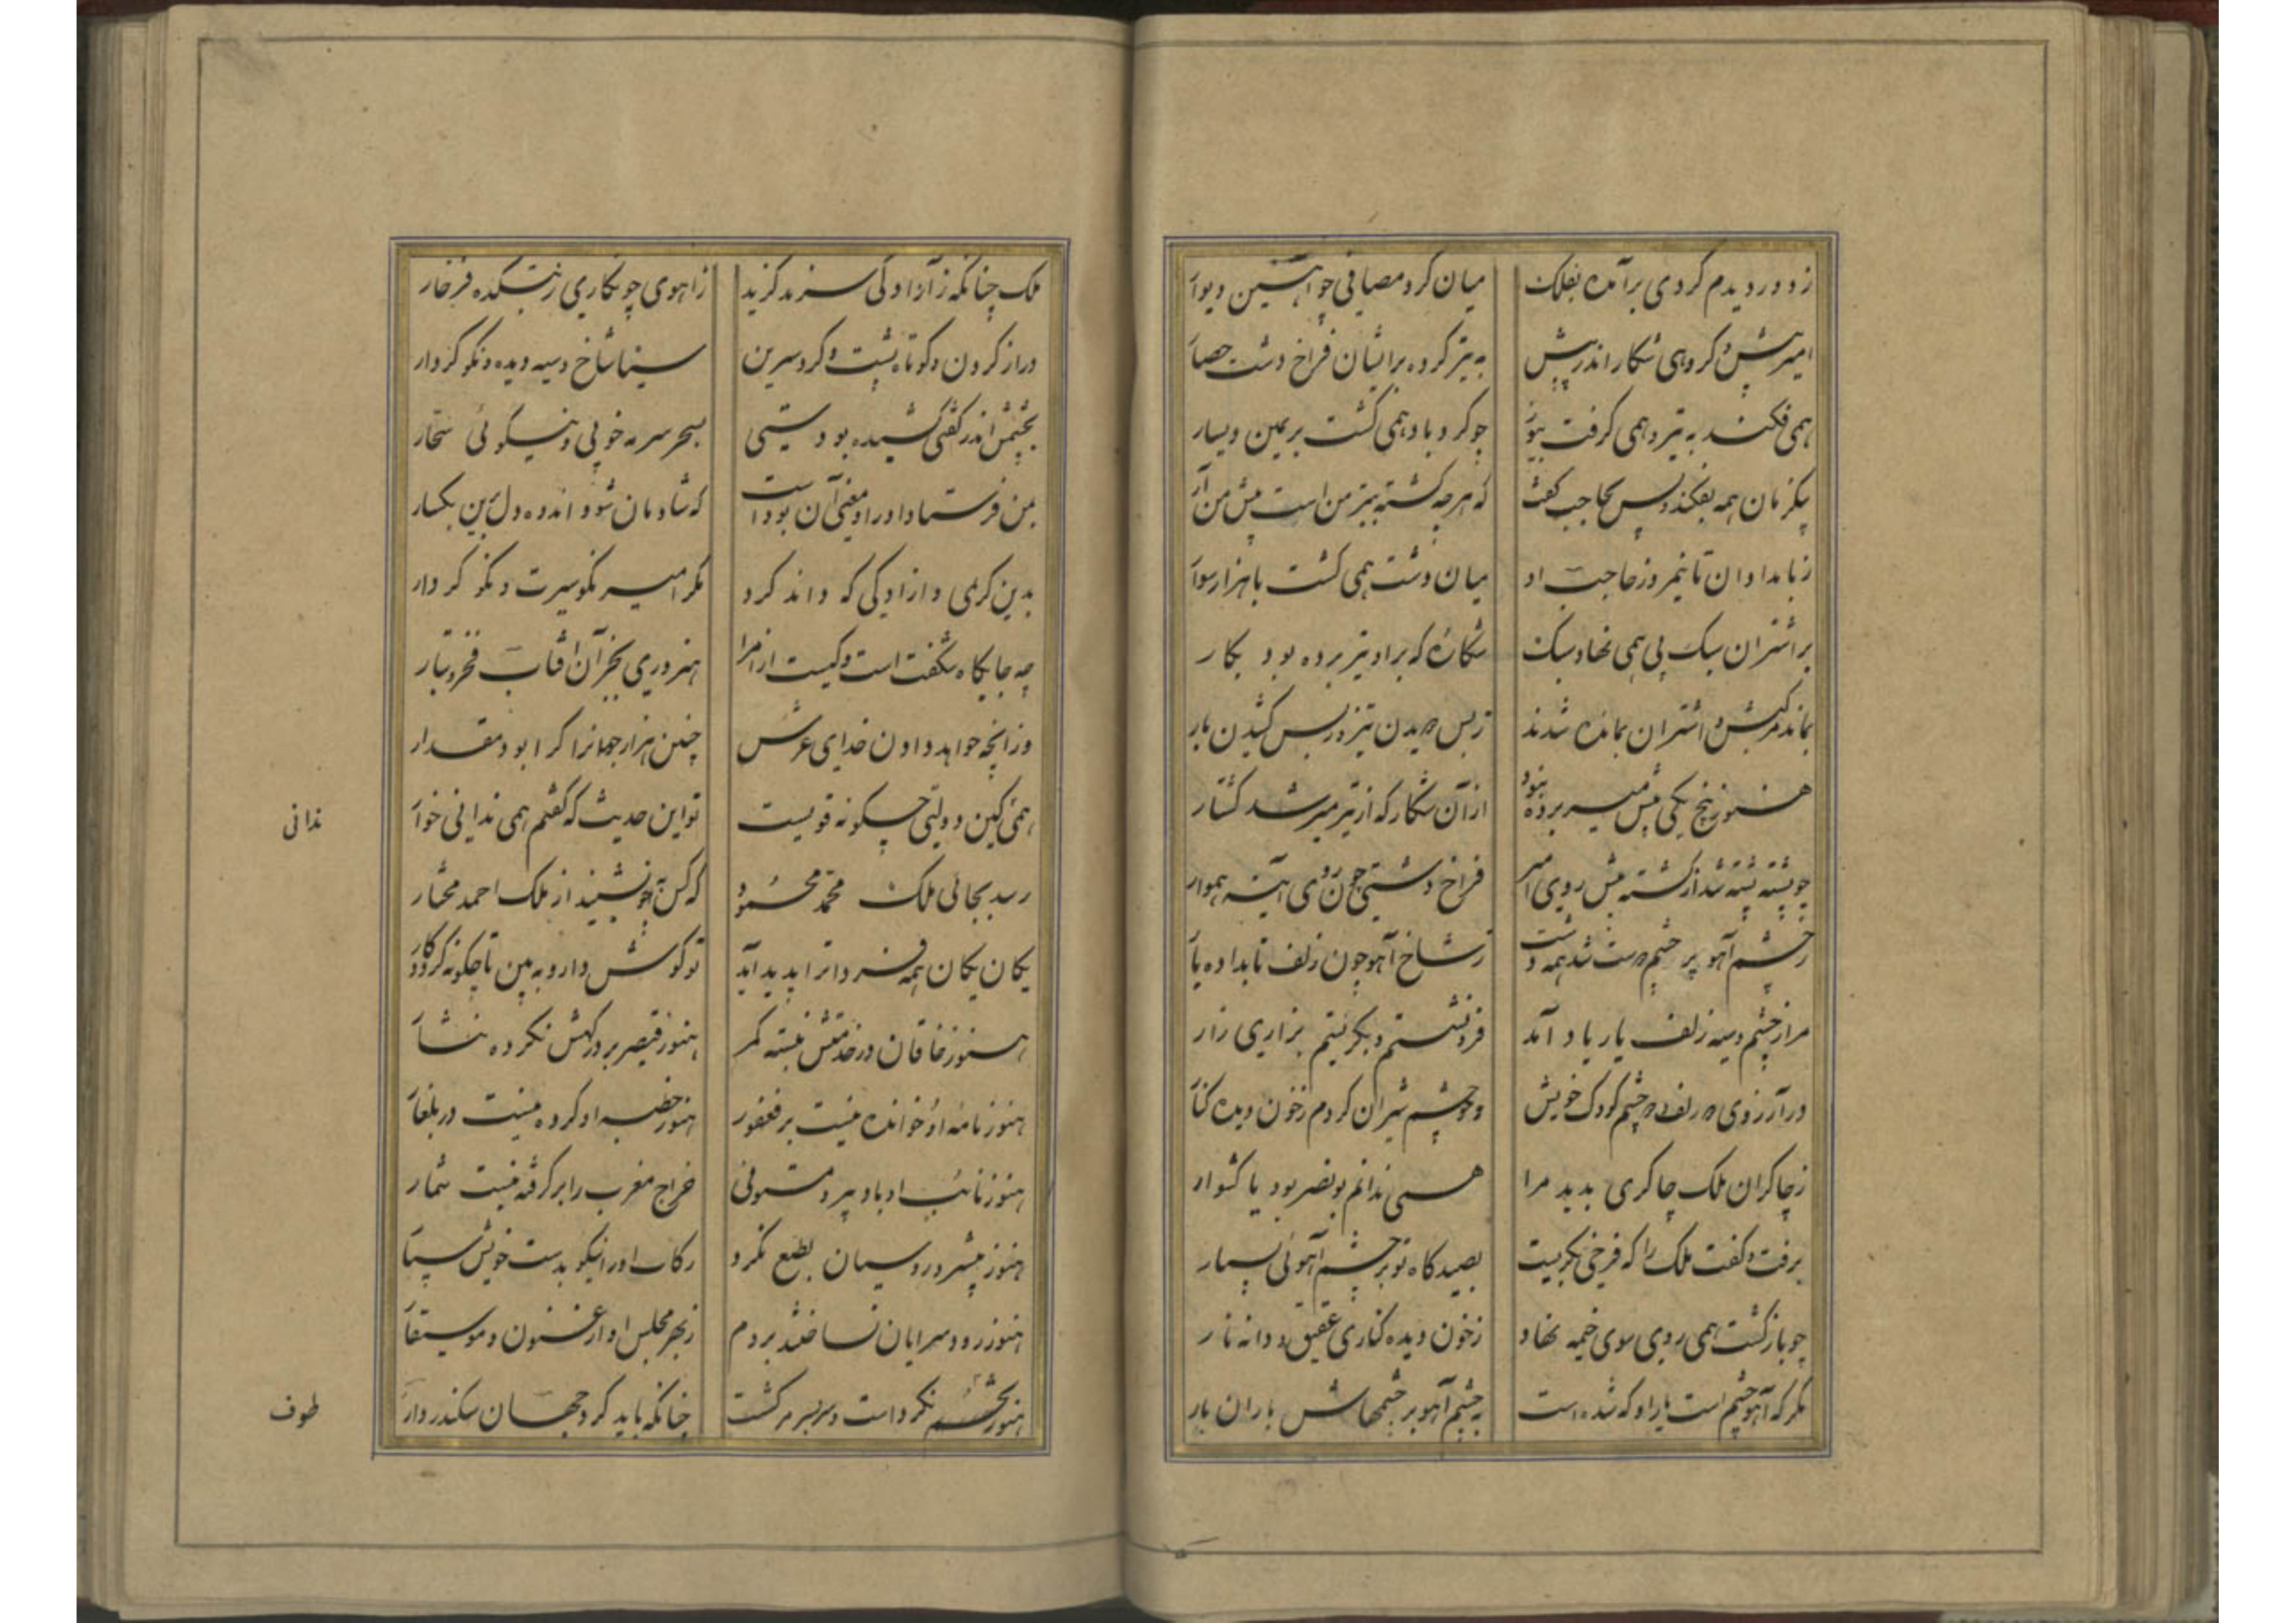 ز دور دیدم گردی برآمده بفلک
میان گرد مصافی چو آهنین دیوا
امیر پیش و گروهی شکار اندر پیش
به تیر کرده برایشان فراخ دشت حصا
همی فکند به تیر و همی گرفت بیوز
چو گرد باد همی گشت بر یمین و یسار
یکزمان همه بفکند و پس بحاجب گفت
که هر چه کشته تیر من است پیش من آر
ز بامدادان تا نیمروز حاجب او
میان دشت همی گشت با هزار سوا
بر اشتران سبک پی همی نهاد سبک
شکارۀ که بر او تیر برده بود بکار
بماند مرکبش و اشتران بمانده شدند
ز بس دویدن تیز و ز بس کشیدن بار
هنوز پنج یکی پیش میر برده نبود
از آن شکار که از تیر میر شد کشتار
چو پشته پشته شد از کشته پیش روی امیر
فراخ دشتی چون روی آینه هموار
ز چشم آهو پر چشم دوست شد همه دشت
ز شاخ آهو چون زلف تابداده یا
مرا ز چشم و سیه زلف یار یاد آمد
فرو نشستم و بگریستم بزاری زار
در آرزوی دو زلف و دو چشم کودک خویش
دو چشم شیران کردم ز خون دیده کنا
ز چاکران ملک چاکری بدید مرا
همی ندانم بونصر بود یا کشوار
برفت و گفت ملک را که فرخی بگریست
بصیدگاه تو بر چشم آهوئی بسیار
چو باز گشت همی روی سوی خیمه نهاد
ز خون دیده کناری عقیق و دانه نار
مگر که آهو چشم است یار او که شده است
به چشم آهو بر چشمهاش باران بار
ملک چنانکه ز آزادگی سزد گزید
ز آهوی چو نگاری ز بتکده فرخار
دراز گردن و کوتاه پشت و گرد سرین
سیناشاخ و سیه دیده و نکو کردار
بچشمش اندر گفتی کشیده بودستی
بسحر سرمه خوبی و نیکوئی سحّار
بمن فرستاد او را و معنی آن بوداست
که شادمان شو و اندوه دل ببین بکسار
بدین کریمی و آزادگی که داند کرد
مگر امیر نکو سیرت و نکو کردار
چه جایگاه شگفت است و کیست از امرا
هنروری بجز آن آفتاب فخر و تبار
وز آنچه خواهد دادن خدای عرش
چنین هزار جهانرا کرا بود مقدار
همی کین دولتی چگونه قویست
تو این حدیث که گفتم همی ندانی خوا
رسد بجائی ملک محمّد محمود
که کس چو نشنید از ملک احمد مختار
یکان یکان همه فردا ترا پدید آید
تو گوش دار و به بین تا چگونه گردد کار
هنوز خاقان در خدمتش نبسته کمر
هنوز قیصر بر درگهش نکرده نثا
هنوز نامۀ او خوانده نیست بر فغفور
هنوز خطبه او کرده نیست در بلغا
هنوز نائب او با دبیر و مستوفی
خراج مغرب را بر گرفته نیست شمار
هنوز پیشرو روسیان بطبع نکرد
رکاب او را نیکو بدست خویش بسپا
هنوز رود سرایان نساختند بروم
ز بهر مجلس او ارغنون و موسیقا
هنوز بخشم نکرداست و سربسر نگشت
چنانکه باید گرد جهان سکندر وار
ندانی
طوف